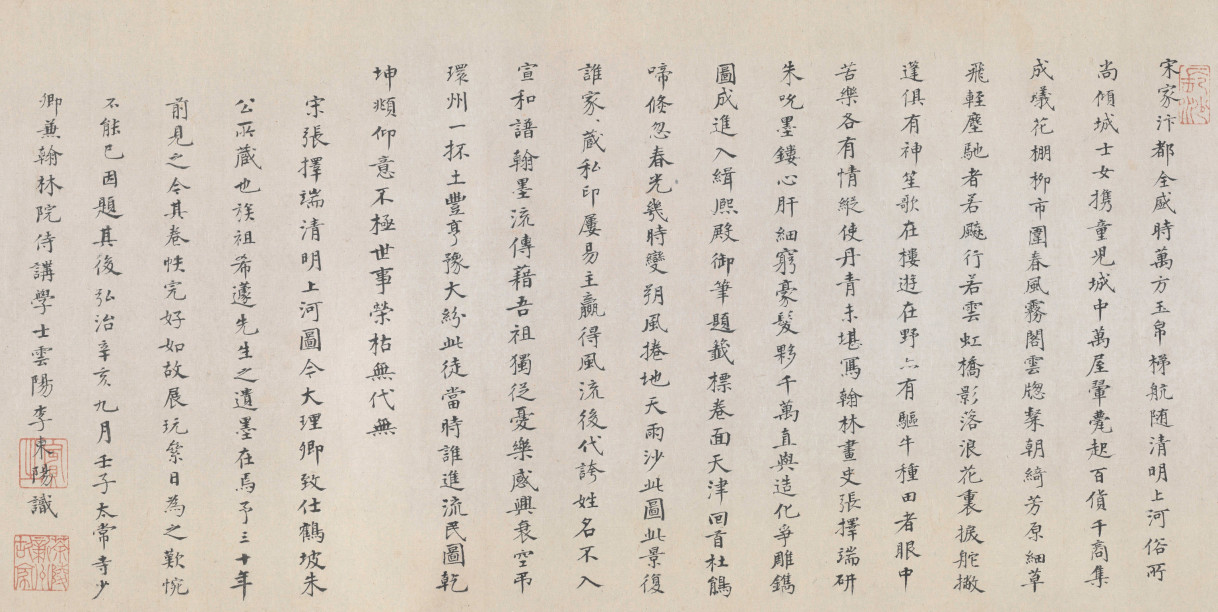 宋家汴都全盛時萬方玉帛梯航随清明上河俗所
尚傾城士女携童兒城中萬屋翬甍起百貨千商集
成蟻花棚柳市圍春風霧閣雲牕粲朝綺芳原細草
飛輕塵馳者若飈行若雲虹橋影落浪花裏捩舵撇
篷俱有神笙歌在樓遊在野亦有驅牛種田者眼中
苦樂各有情縱使丹青未堪寫翰林畫史張擇端研
朱吮墨鏤心肝細窮豪髮夥千萬直與造化爭雕鐫
圖成進入緝熈殿御筆題籤標卷面天津回首杜鵑
啼倏忽春光幾時變朔風捲地天雨沙此圖此景復
誰家家藏私印屢易主贏得風流後代誇姓名不入
宣和譜翰墨流傳藉吾祖獨從憂樂感興衰空弔
環州一抔土豐亨豫大紛此徒當時誰進流民圖乾
坤頫仰意不極世事榮枯無代無
宋張擇端清明上河圖今大理卿致仕鶴坡朱
公所藏也族祖希蘧先生之遺墨在焉予三十年
前見之今其卷帙完好如故展玩絫日為之歎惋
不能已因題其後弘治辛亥九月壬子太常寺少
卿兼翰林院侍講學士雲陽李東陽識